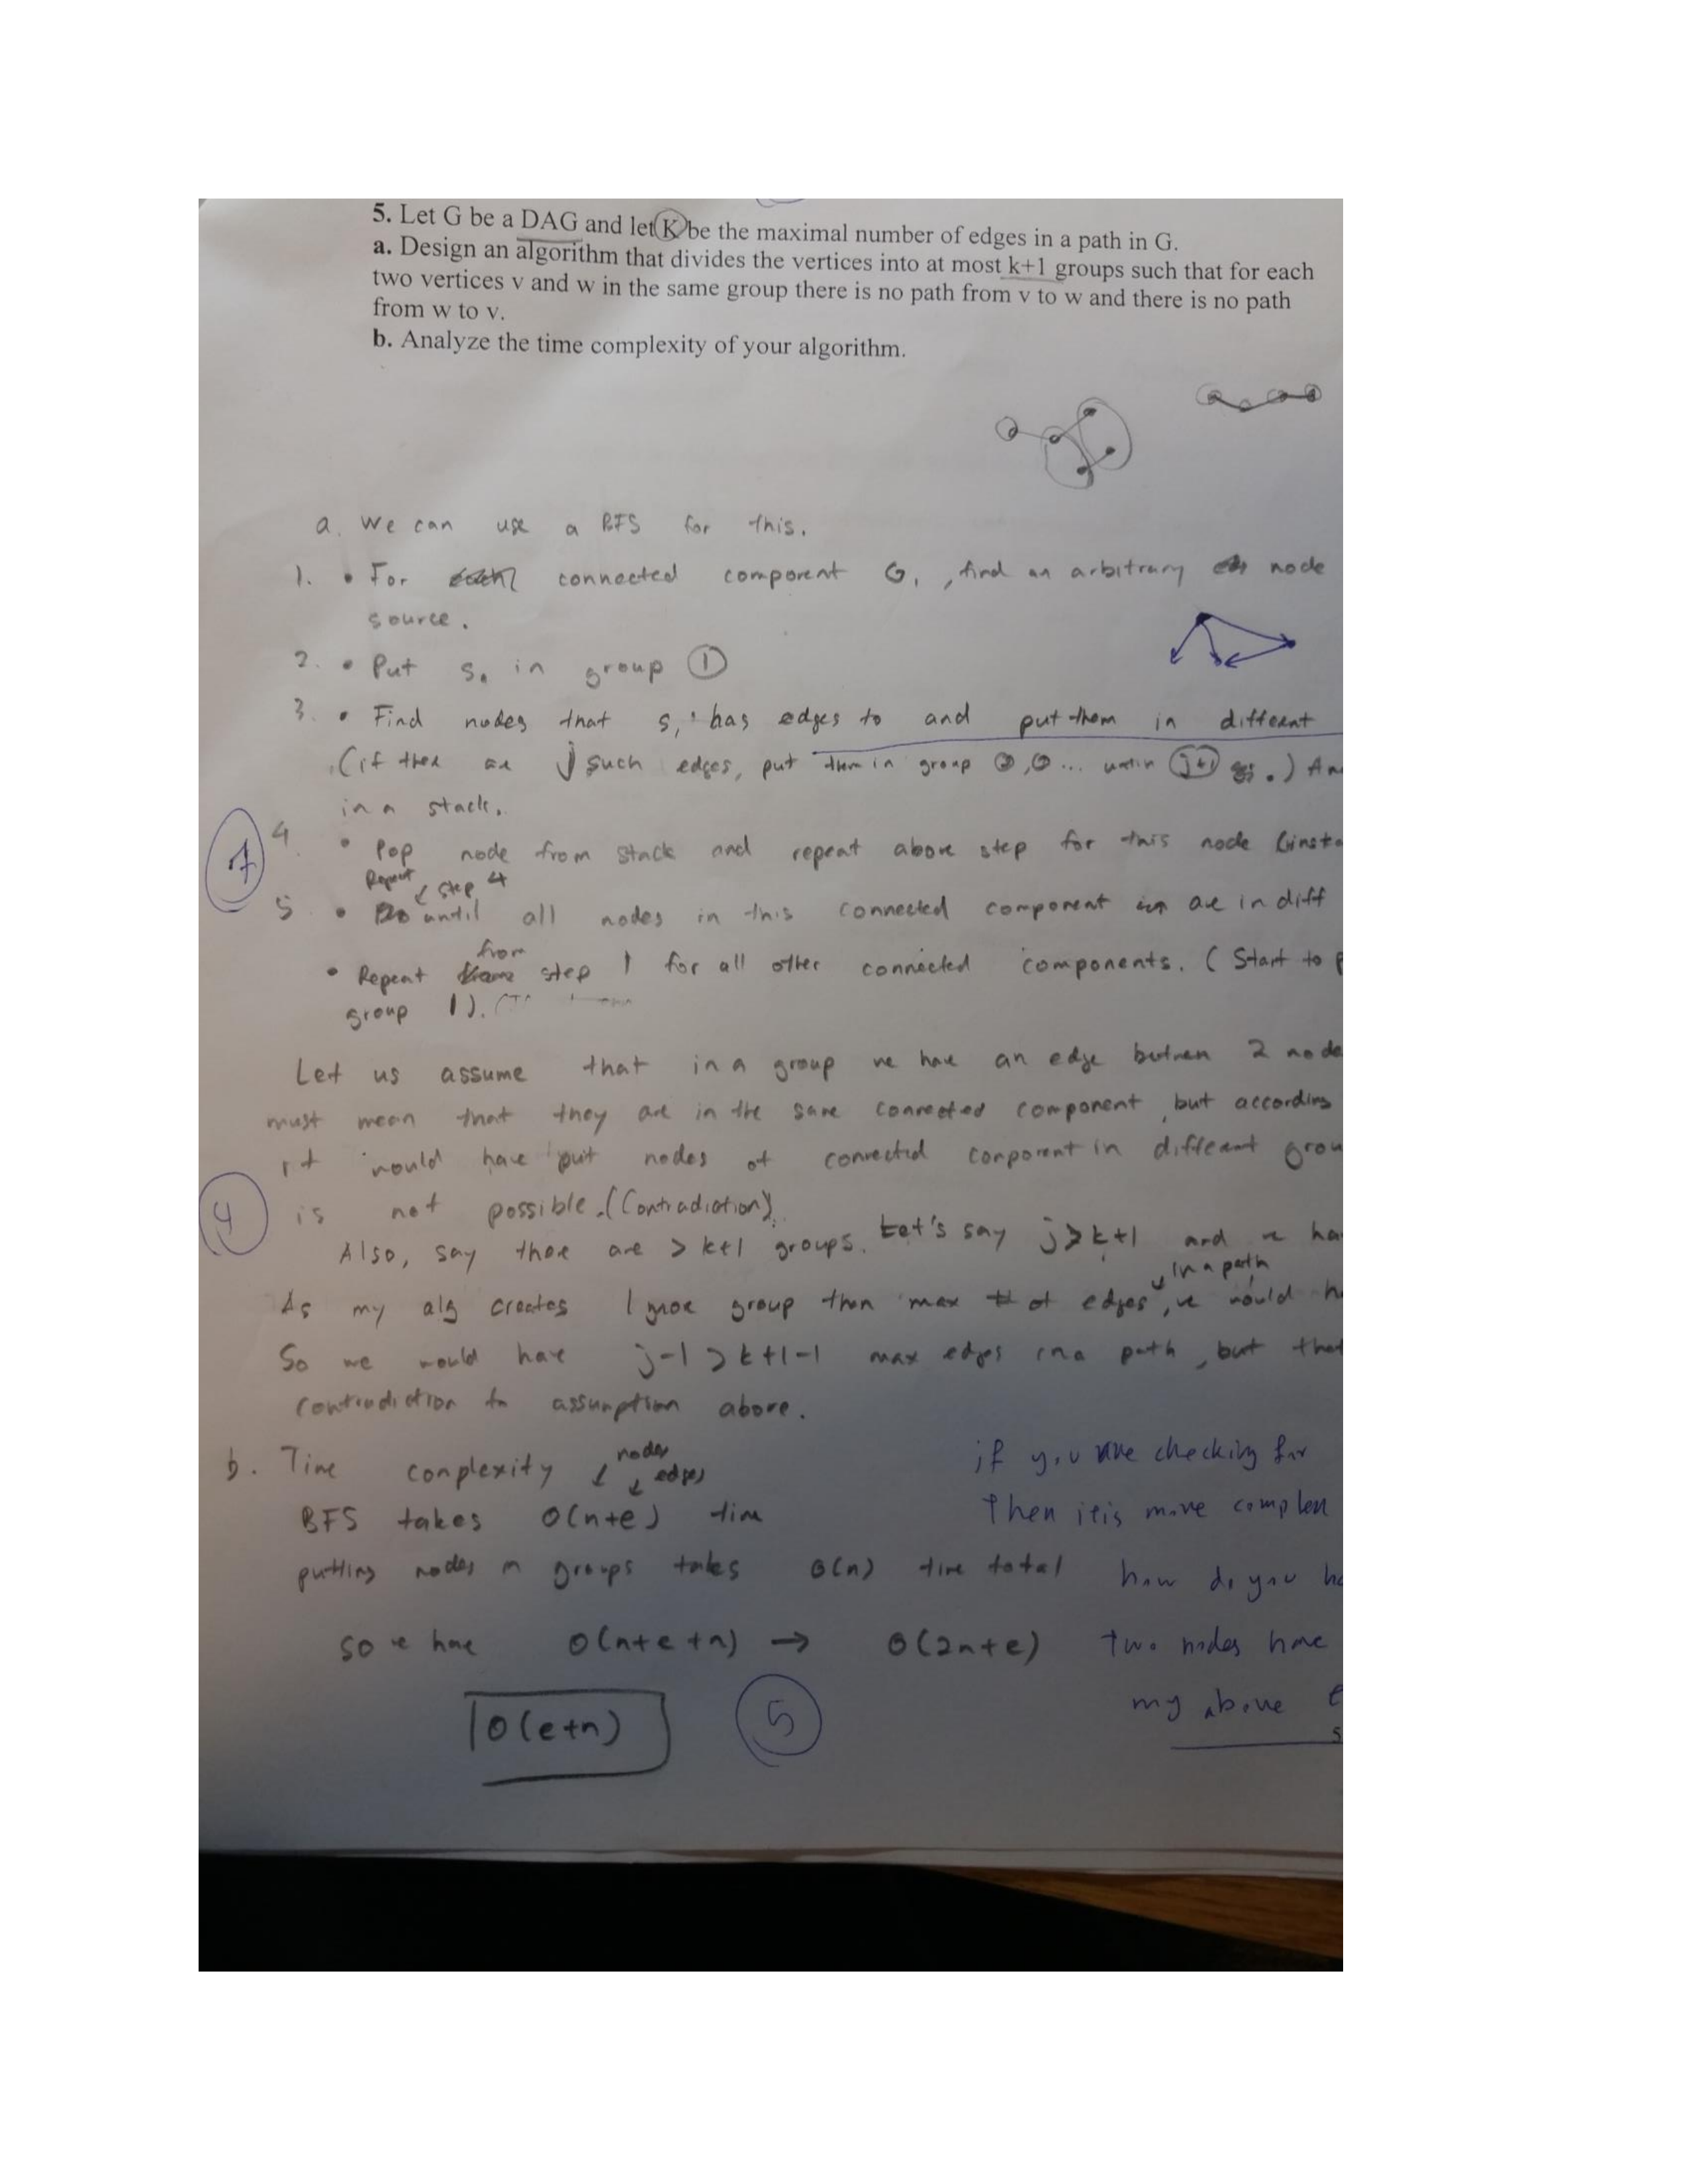 5. Let G be a DAG and let K be the maximal number of edges in a path in G.
a. Design an algorithm that divides the vertices into at most k+1 groups such that for each
two vertices v and w in the same group there is no path from v to w and there is no path
from w to v.
b. Analyze the time complexity of your algorithm.
a. We can use a BFS for this.
1. • For connected component G, , find an arbitrary node
source.
2. • Put s. in group 1
3. • Find nodes that s, has edges to and put them in different
(if there are j such edges, put them in group 2, ... until j+1 .) An
in a stack.
7
4. • Pop node from stack and repeat above step for this node (inste
5. • Repeat step 4 until all nodes in this connected component are in diff
• Repeat from step 1 for all other connected components. ( Start to p
group 1).
Let us assume that in a group we have an edge between 2 node
must mean that they are in the same connected component, but according
it would have put nodes of connected component in different grou
4
is not possible. (Contradiction).
Also, say there are > k+1 groups. Let's say j > k+1 and we ha
As my alg creates 1 more group than max # of edges in a path, we would h
So we would have j-1 > k+1-1 max edges in a path, but that
contradiction to assumption above.
b. Time complexity
nodes
edges
BFS takes O(n+e) time
putting nodes in groups takes O(n) time total
so we have O(n+e+n) → O(2n+e)
O(e+n)
5
if you are checking for
Then it is more complex
how do you ha
two nodes have
my above e
s